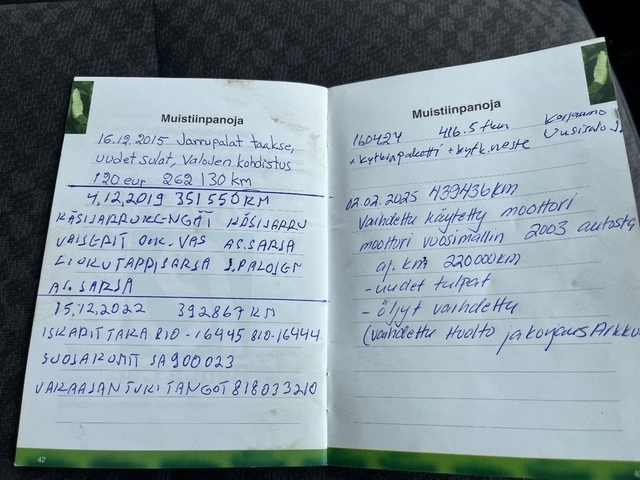 Muistiinpanoja
16.12.2015 Jarrupalat taakse,
uudet sulat, Valojen kohdistus
120 eur 262 130 km
4.12.2019 351 550 KM
KÄSIJARRUKENGÄT KÄSIJARRU
VAIJERIT OIK. VAS AS.SARJA
LIUKUTAPPISARJA J.PALOJEN
AS.SARJA
15.12.2022 392867 KM
ISKARIT TAKA 810-16445 810-16444
SUOJAKUMIT SA900023
VAKAAJAN TUKITANGOT 818033210
42
Muistiinpanoja
160424 416.5 tkm Korjaamo
+ kytkinpaketti + kytk.neste Uusitalo
02.02.2025 439436km
Vaihdettu käytetty moottori
moottori vuosimallin 2003 autosta
aj. km 220000km
- uudet tulpat
- öljyt vaihdettu
(vaihdettu Huolto ja korjaus Arkku